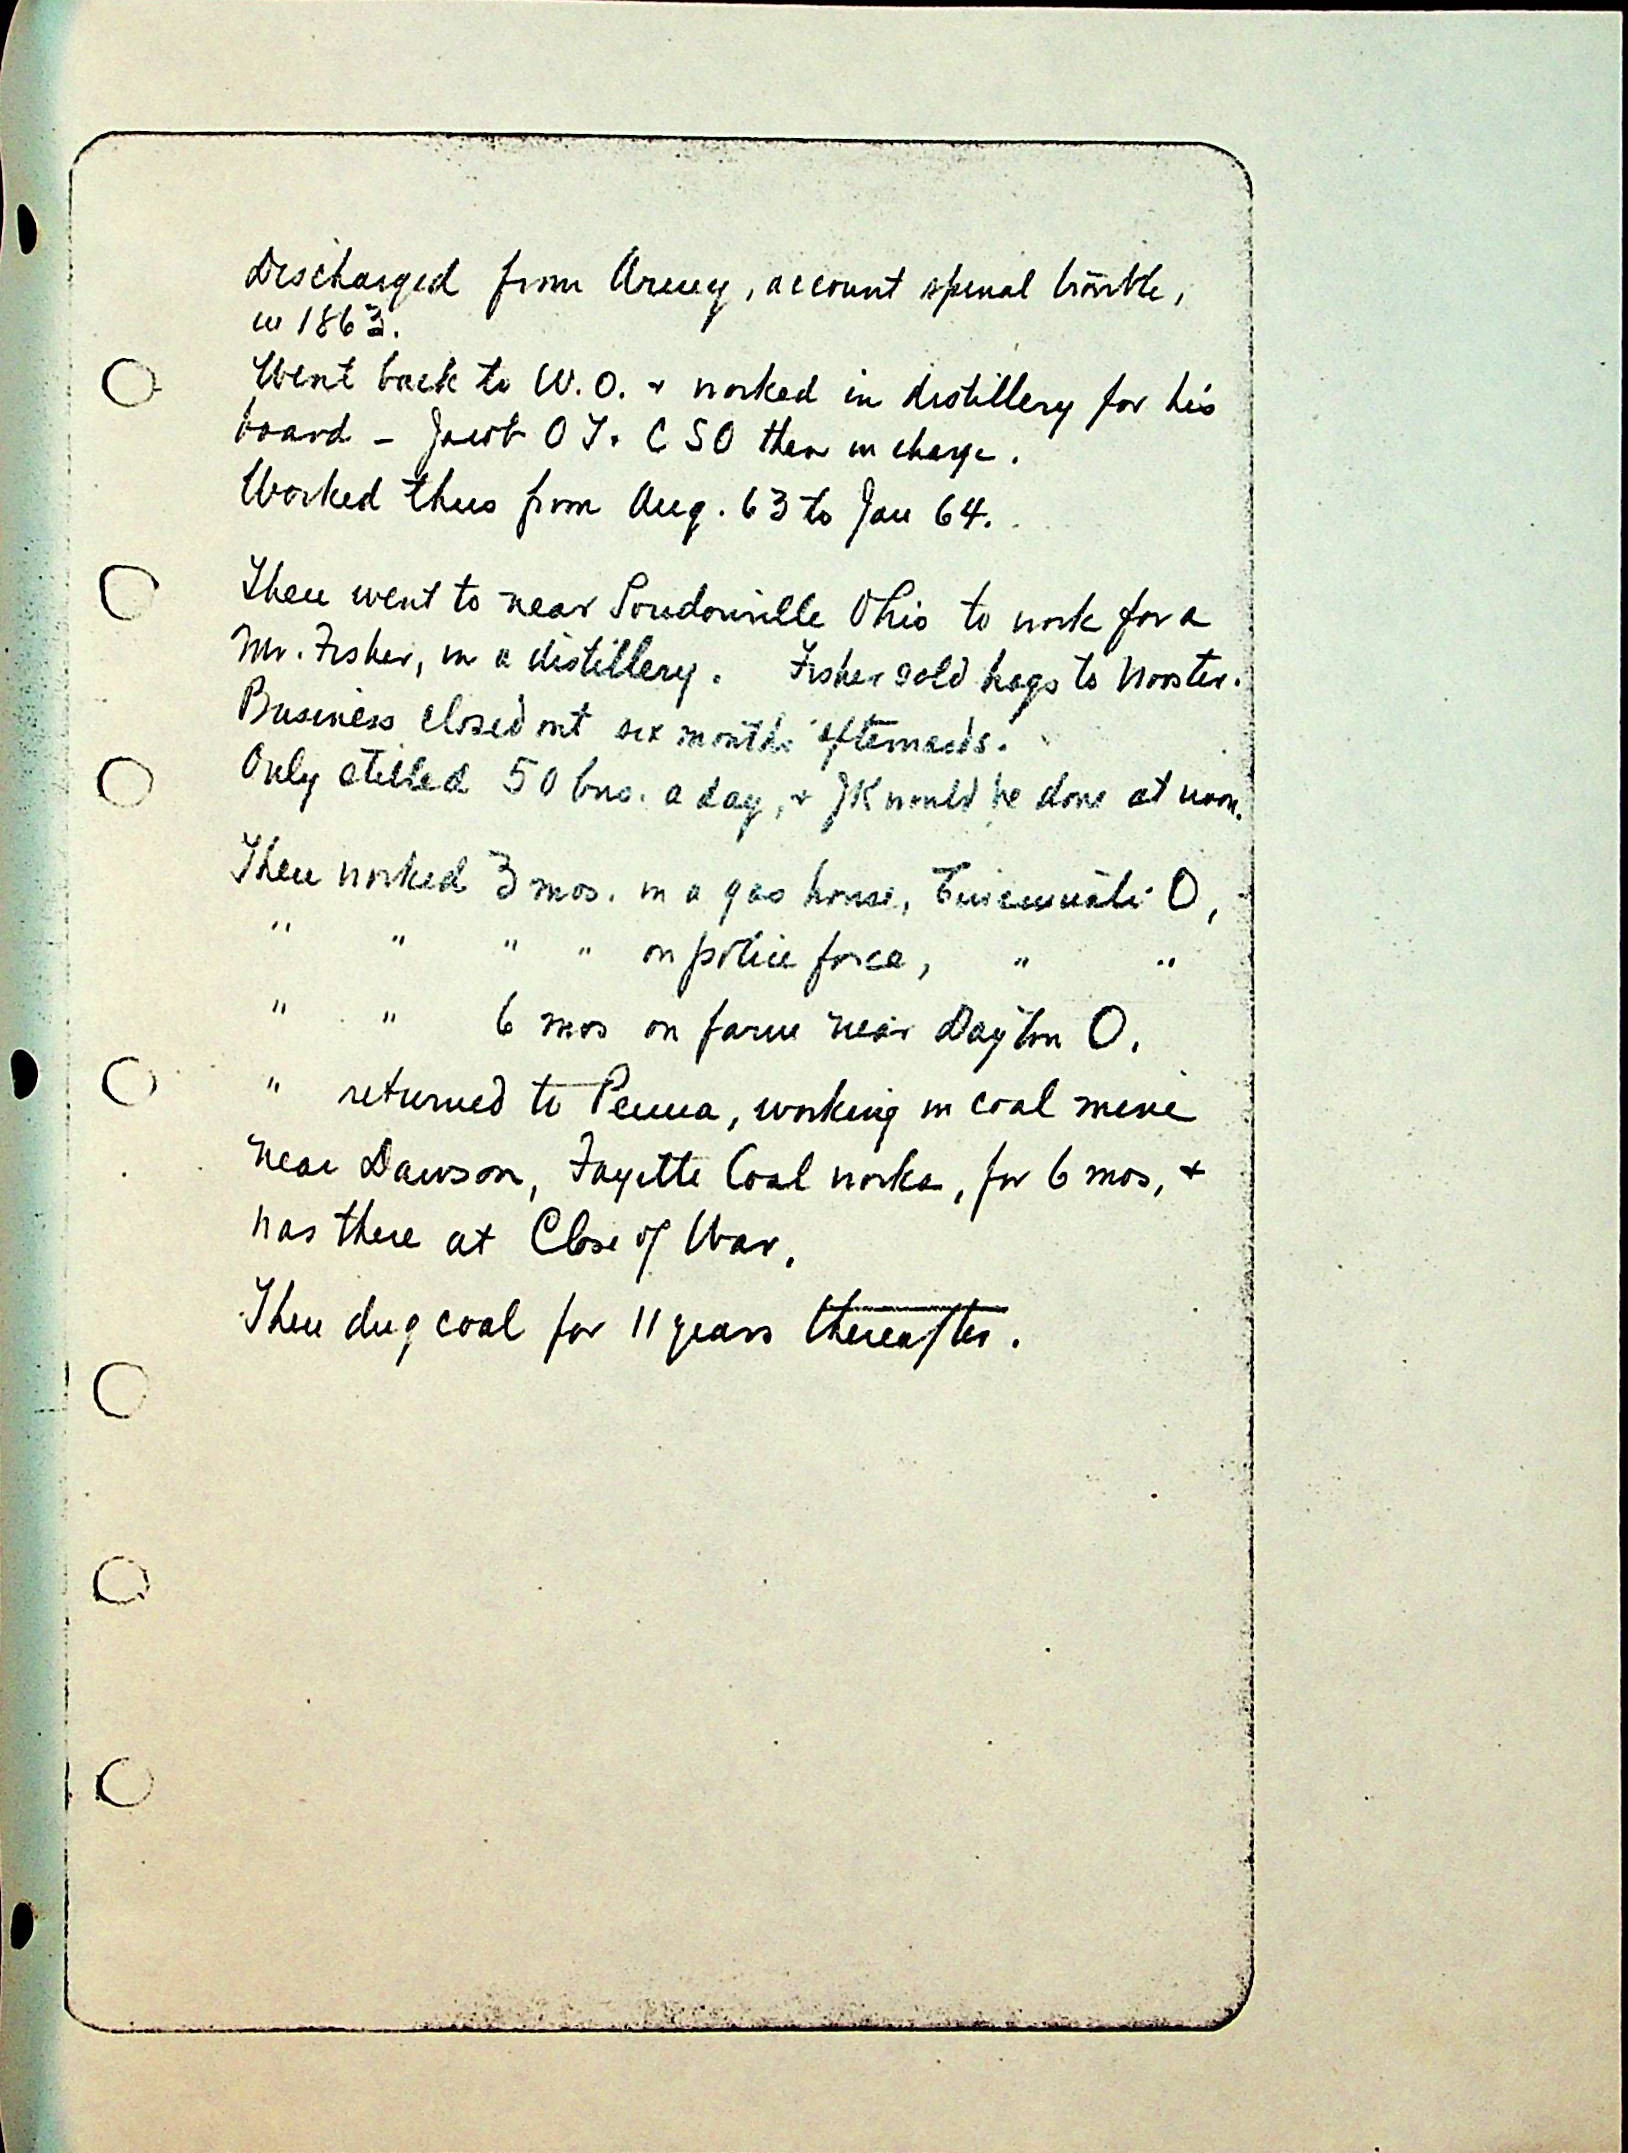 Discharged from Army, account spinal trouble,
in 1863.
Went back to W.O. & worked in distillery for his
board – Jacob O F. C S O then in charge.
Worked thus from Aug. 63 to Jan 64.
Then went to near Loudonville Ohio to work for a
Mr. Fisher, in a distillery. Fisher sold hogs to Wooster.
Business closed out six months afterwards.
Only stilled 50 bus. a day, & JK would be done at noon.
Then worked 3 mos. in a gas house, Cincinnati O,
" " " " on police force, " "
" " 6 mos on farm near Dayton O.
" returned to Penna, working in coal mine
near Dawson, Fayette Coal works, for 6 mos, &
was there at Close of War.
Then dug coal for 11 years thereafter.